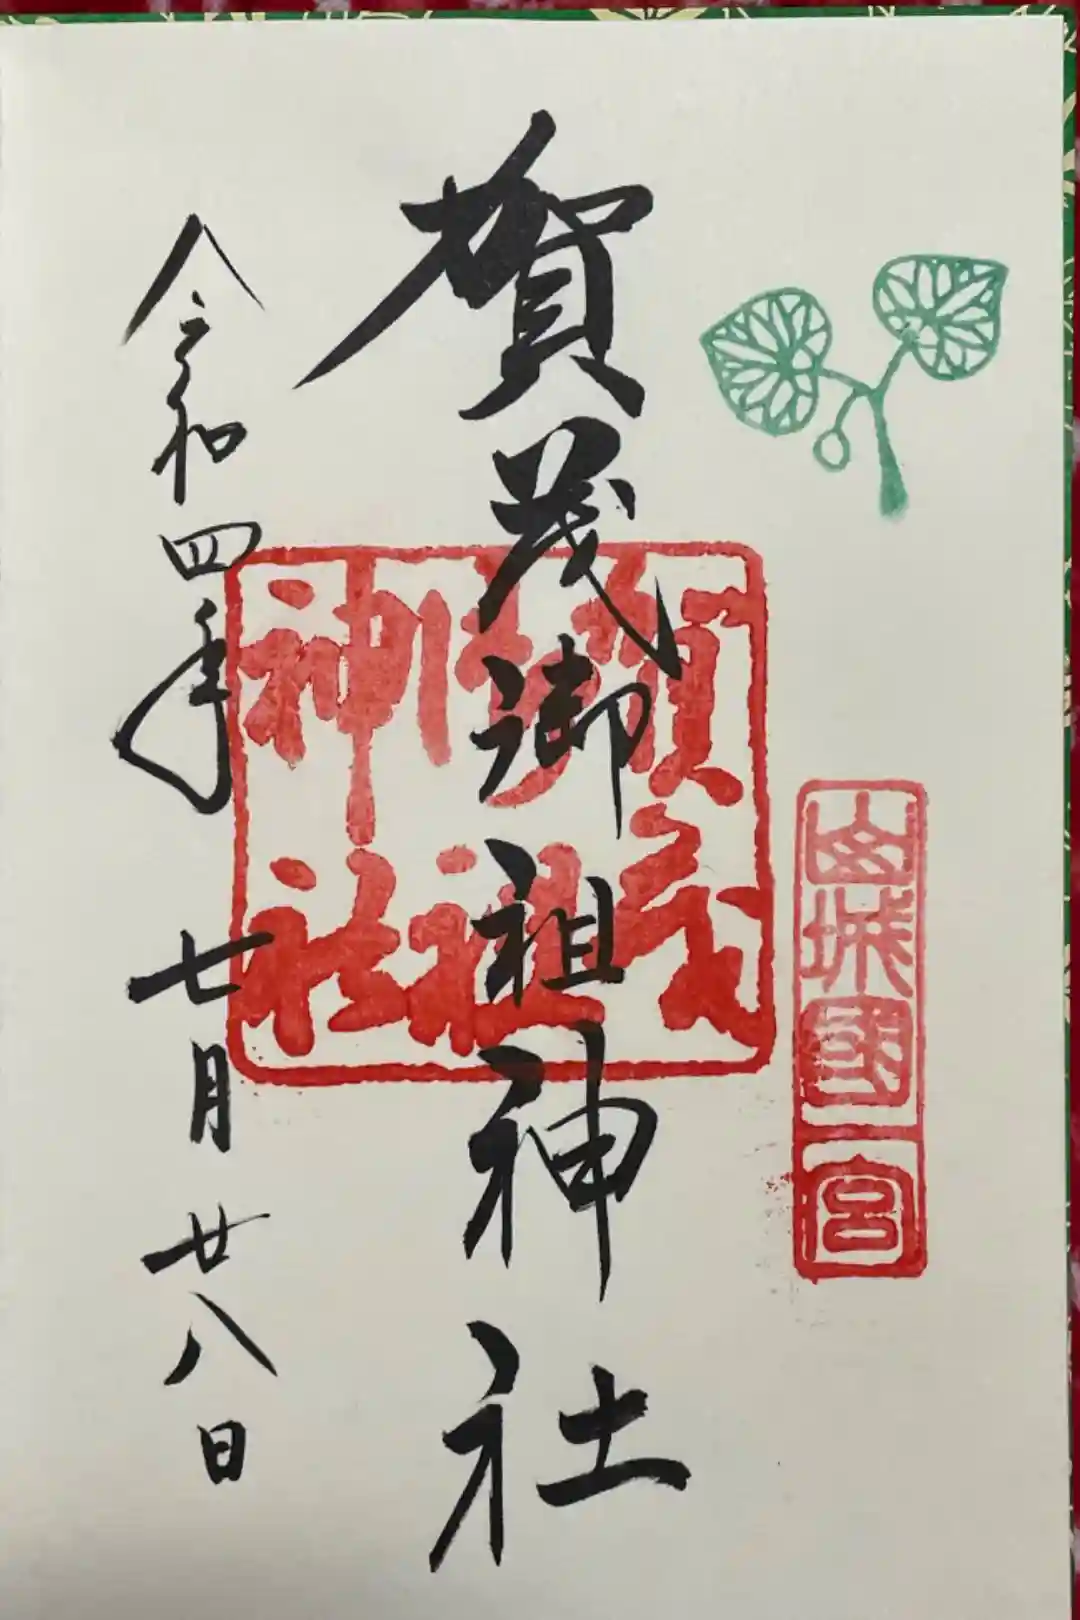 山城國一宮
賀茂御祖神社
賀茂
御祖
神社
令和四年 七月 廿八日